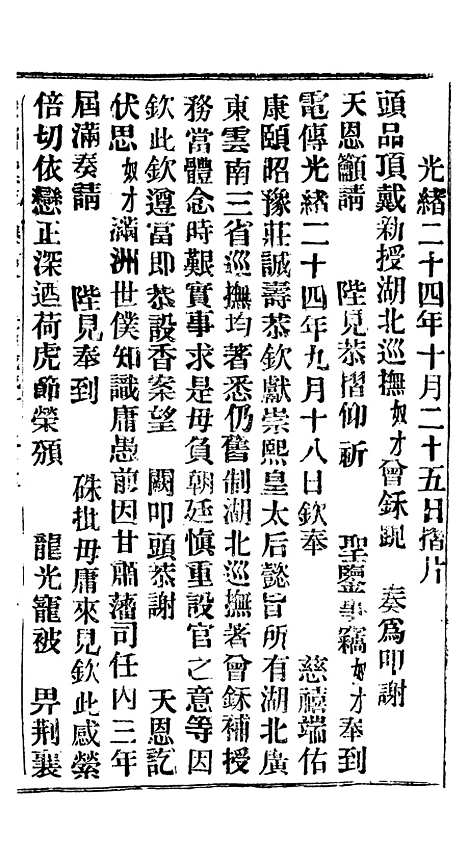 光緒二十四年十月二十五日摺片
頭品頂戴新授湖北巡撫奴才曾鉌跪　奏爲叩謝
天恩籲請　陛見恭摺仰祈　聖鑒事竊奴才奉到
電傳光緒二十四年九月十八日欽奉　慈禧端佑
康頤昭豫莊誠壽恭欽獻崇熙皇太后懿旨所有湖北廣
東雲南三省巡撫均著悉仍舊制湖北巡撫著曾鉌補授
務當體念時艱實事求是毋負朝廷慎重設官之意等因
欽此欽遵當即恭設香案望　闕叩頭恭謝　天恩訖
伏思奴才滿洲世僕知識庸愚前因甘肅藩司任內三年
屆滿奏請　陛見奉到　硃批毋庸來見欽此感縈
倍切依戀正深迺荷虎節榮頒　龍光寵被　畀荆襄